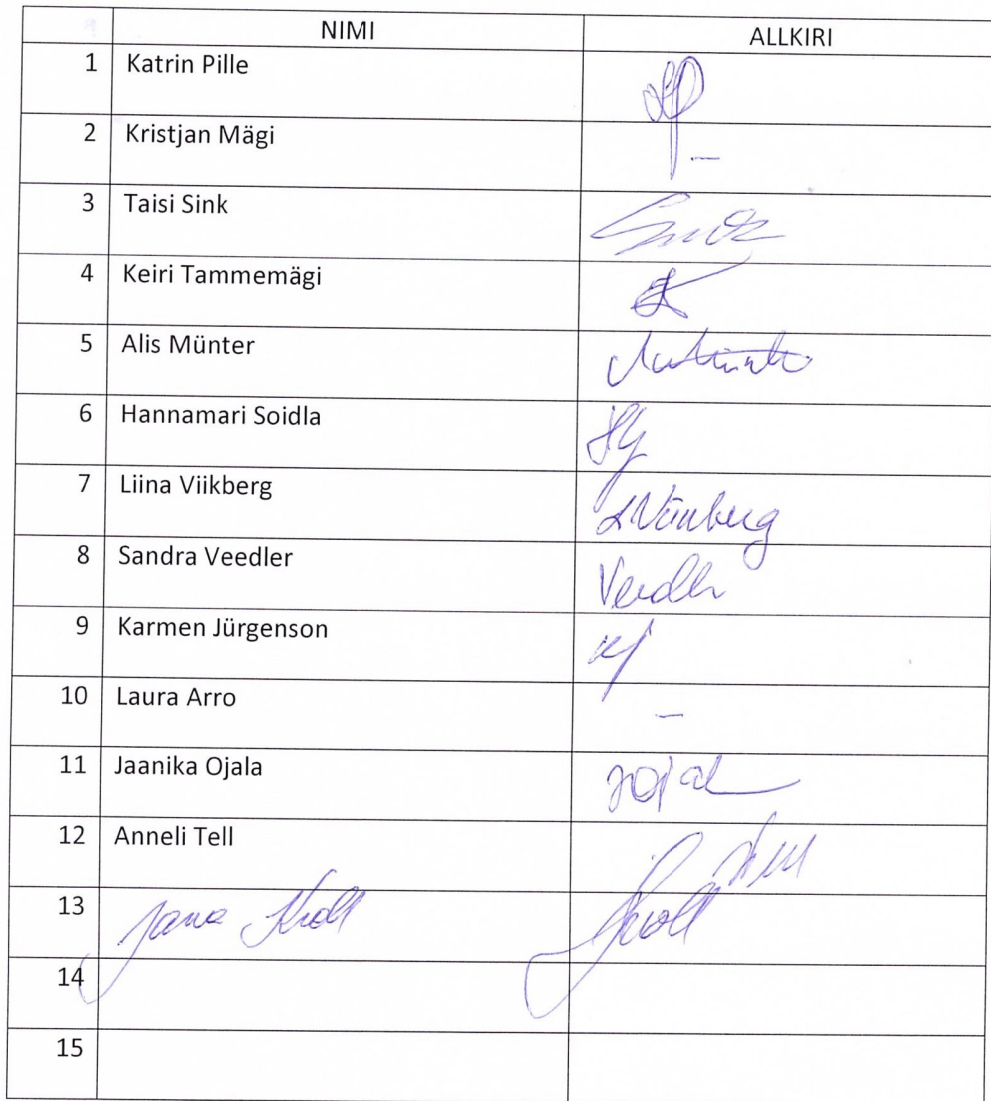 NIMI ALLKIRI
1 Katrin Pille
2 Kristjan Mägi —
3 Taisi Sink
4 Keiri Tammemägi
5 Alis Münter
6 Hannamari Soidla
7 Liina Viikberg
8 Sandra Veedler
9 Karmen Jürgenson KJ
10 Laura Arro —
11 Jaanika Ojala
12 Anneli Tell
13 Jana Kroll Kroll
14
15